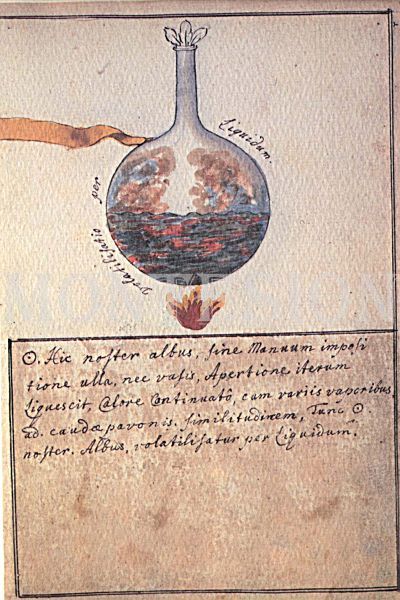 Liquidum.
volatilisatio per
☉. Hic noster albus, sine Manuum imposi
tione ulla, nec vasis, Apertione iterum
liquescit, Calore Continuatô, cum variis vaporibus
ad. caudæ pavonis. similitudinem, Tunc ☉.
noster. Albus, volatilisatur per Liquidum.